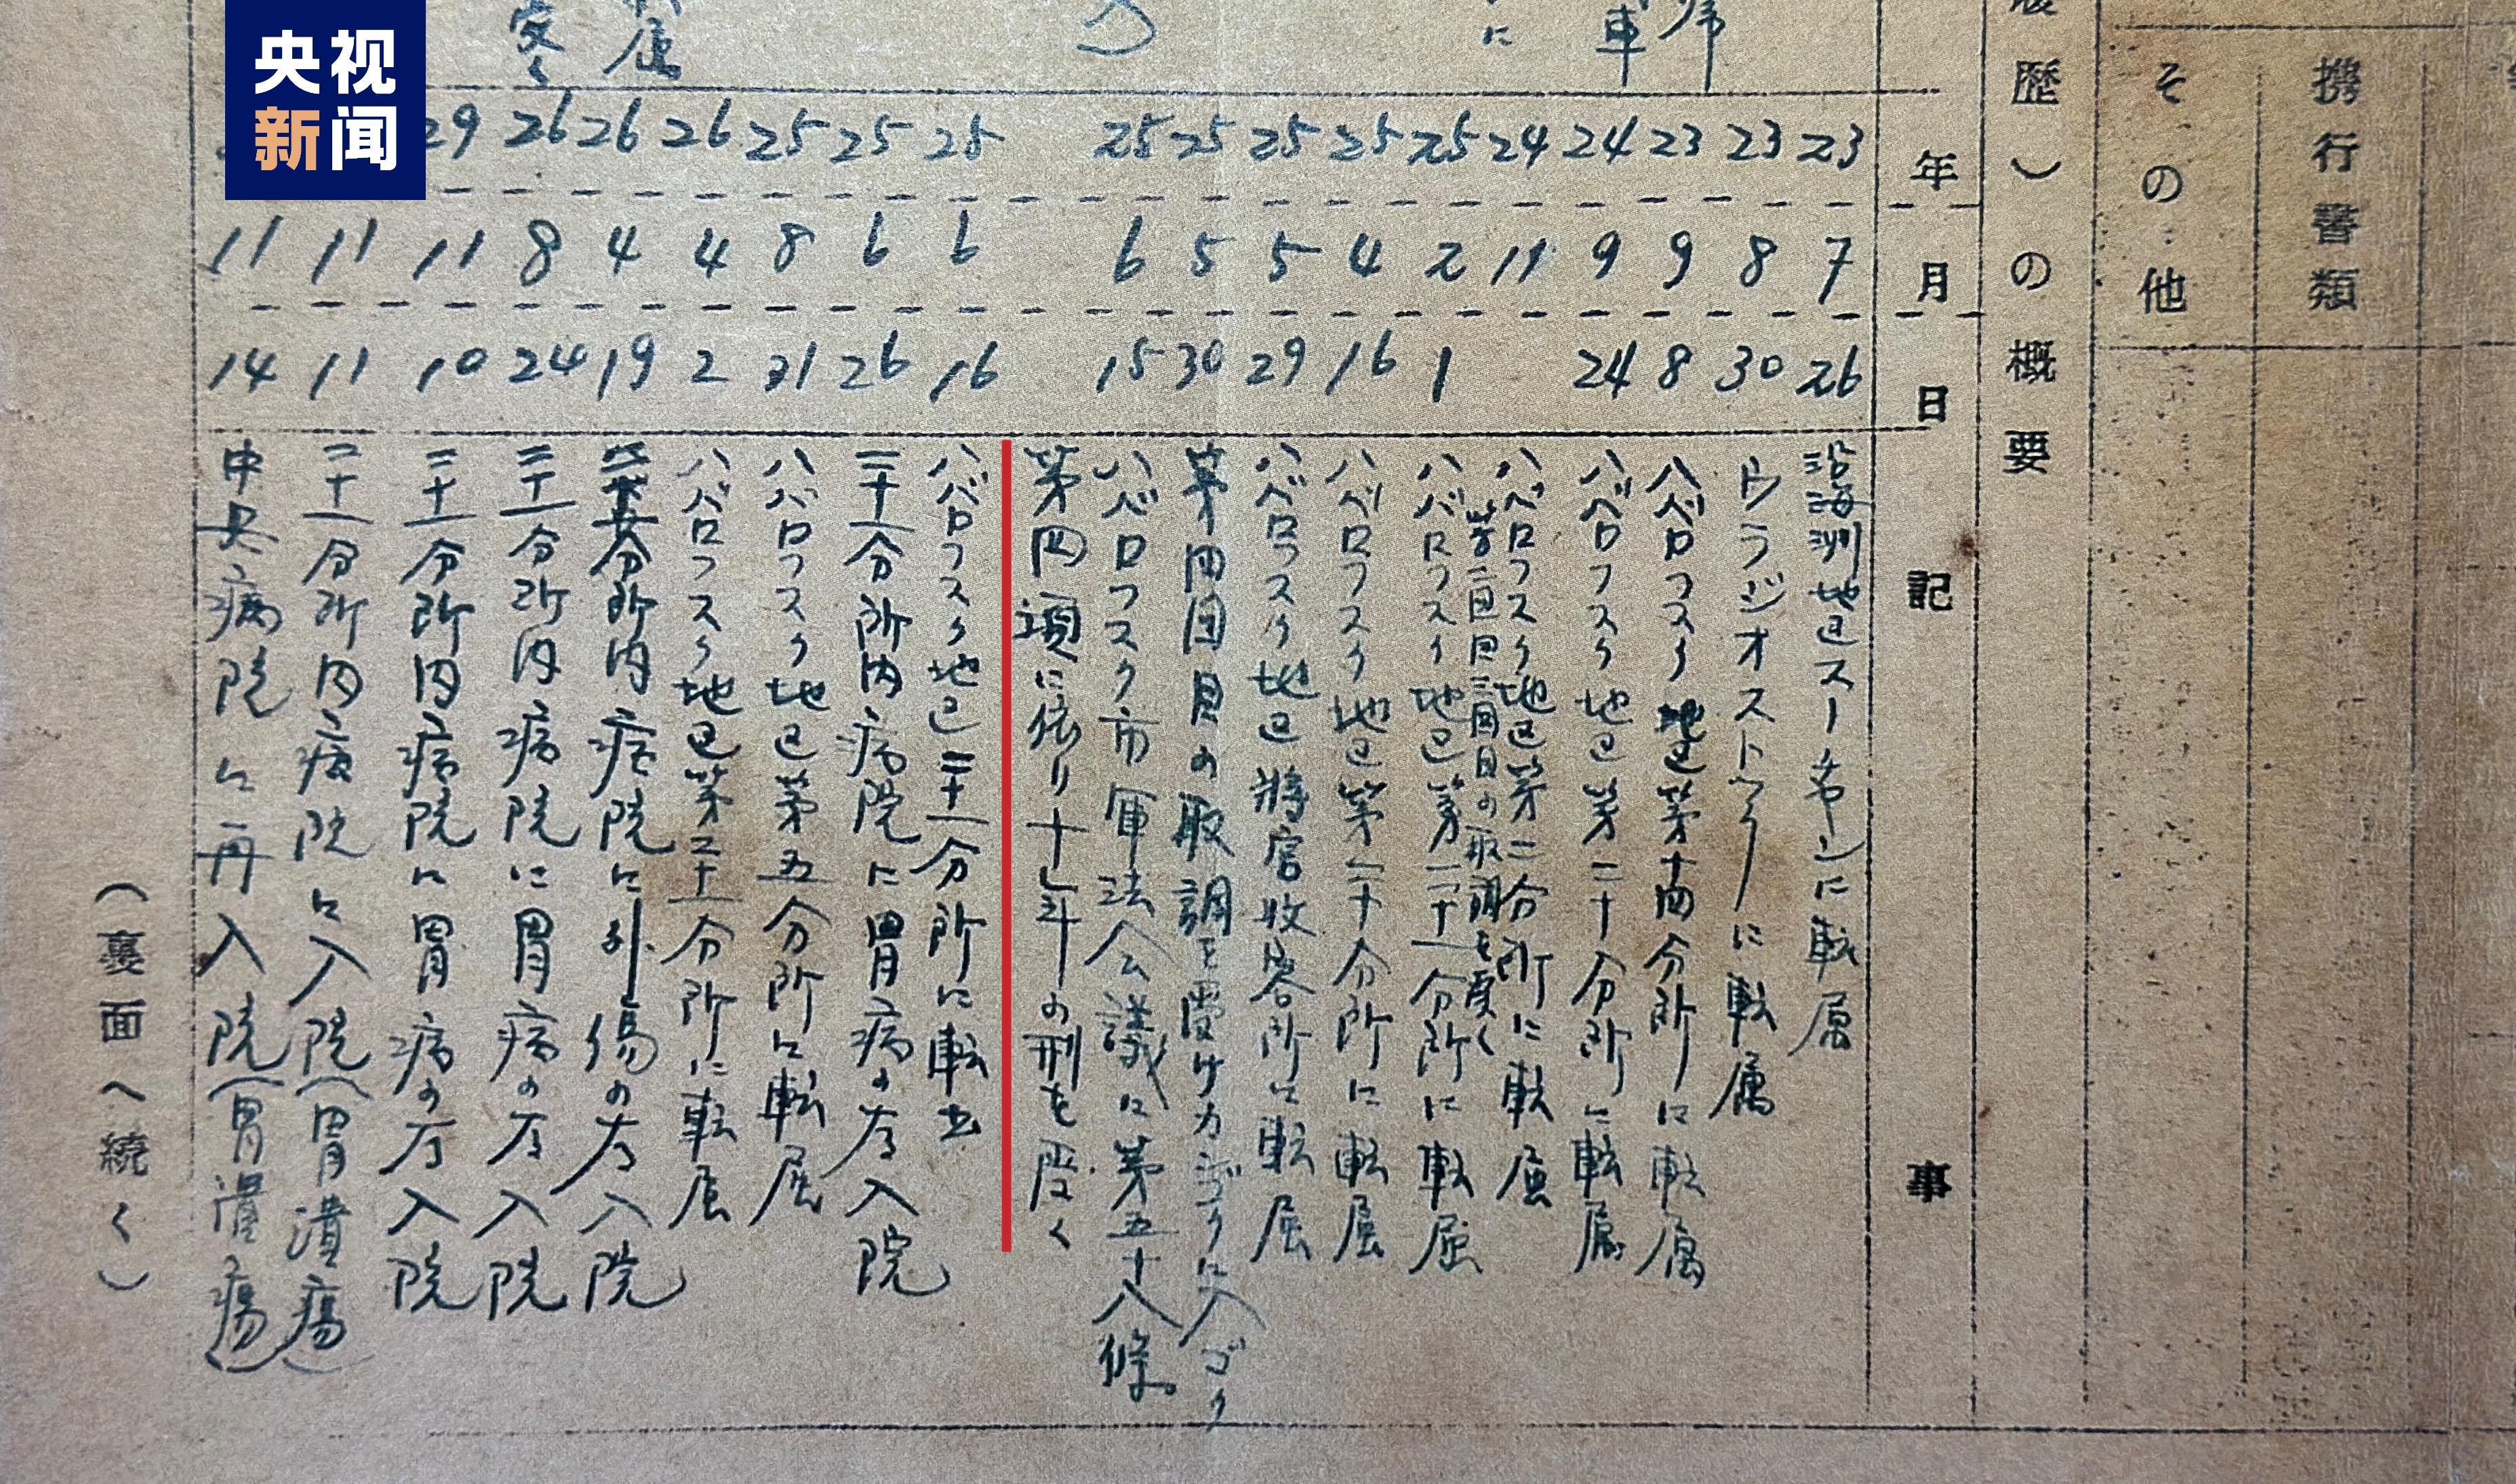 央视
新闻
携行書類
その他
歴)の概要
年 月 日 記事
23 7 26 沿海州地区スーチャンに転属
23 8 30 ウラジオストックに転属
23 9 8 ハバロフスク地区第十四分所に転属
24 9 24 ハバロフスク地区第二十分所に転属
24 11 ハバロフスク地区第二分所に転属
第二回三回目の取調を受く
25 2 1 ハバロフスク地区第二十一分所に転属
25 4 16 ハバロフスク地区第二十分所に転属
25 5 29 ハバロフスク地区将官収容所に転属
25 5 30 第四回目の取調を受けカンゴクに入ゴク
25 6 15 ハバロフスク市軍法会議に第五十八條
第四項に依り十年の刑を受く
25 6 16 ハバロフスク地区二十一分所に転出
25 6 26 二十一分所内病院に胃病の為入院
25 8 31 ハバロフスク地区第五分所に転属
26 4 2 ハバロフスク地区第二十一分所に転属
26 4 19 分所内病院に外傷の為入院
26 8 24 二十一分所内病院に胃病の為入院
29 11 10 二十一分所内病院に胃病の為入院
11 11 二十一分所内病院に入院(胃潰瘍)
11 14 中央病院に再入院(胃潰瘍)
(裏面へ続く)